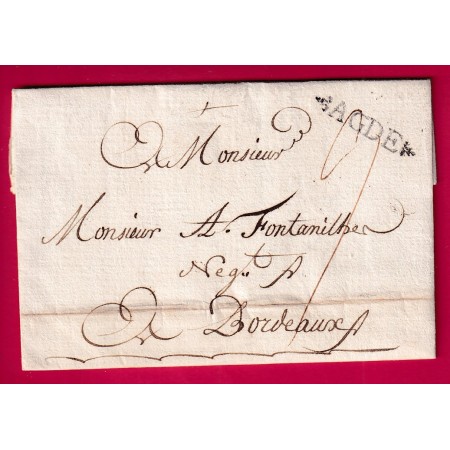 *AGDE*
A Monsieur
Monsieur A. Fontanilhe
Negt.
A Bordeaux